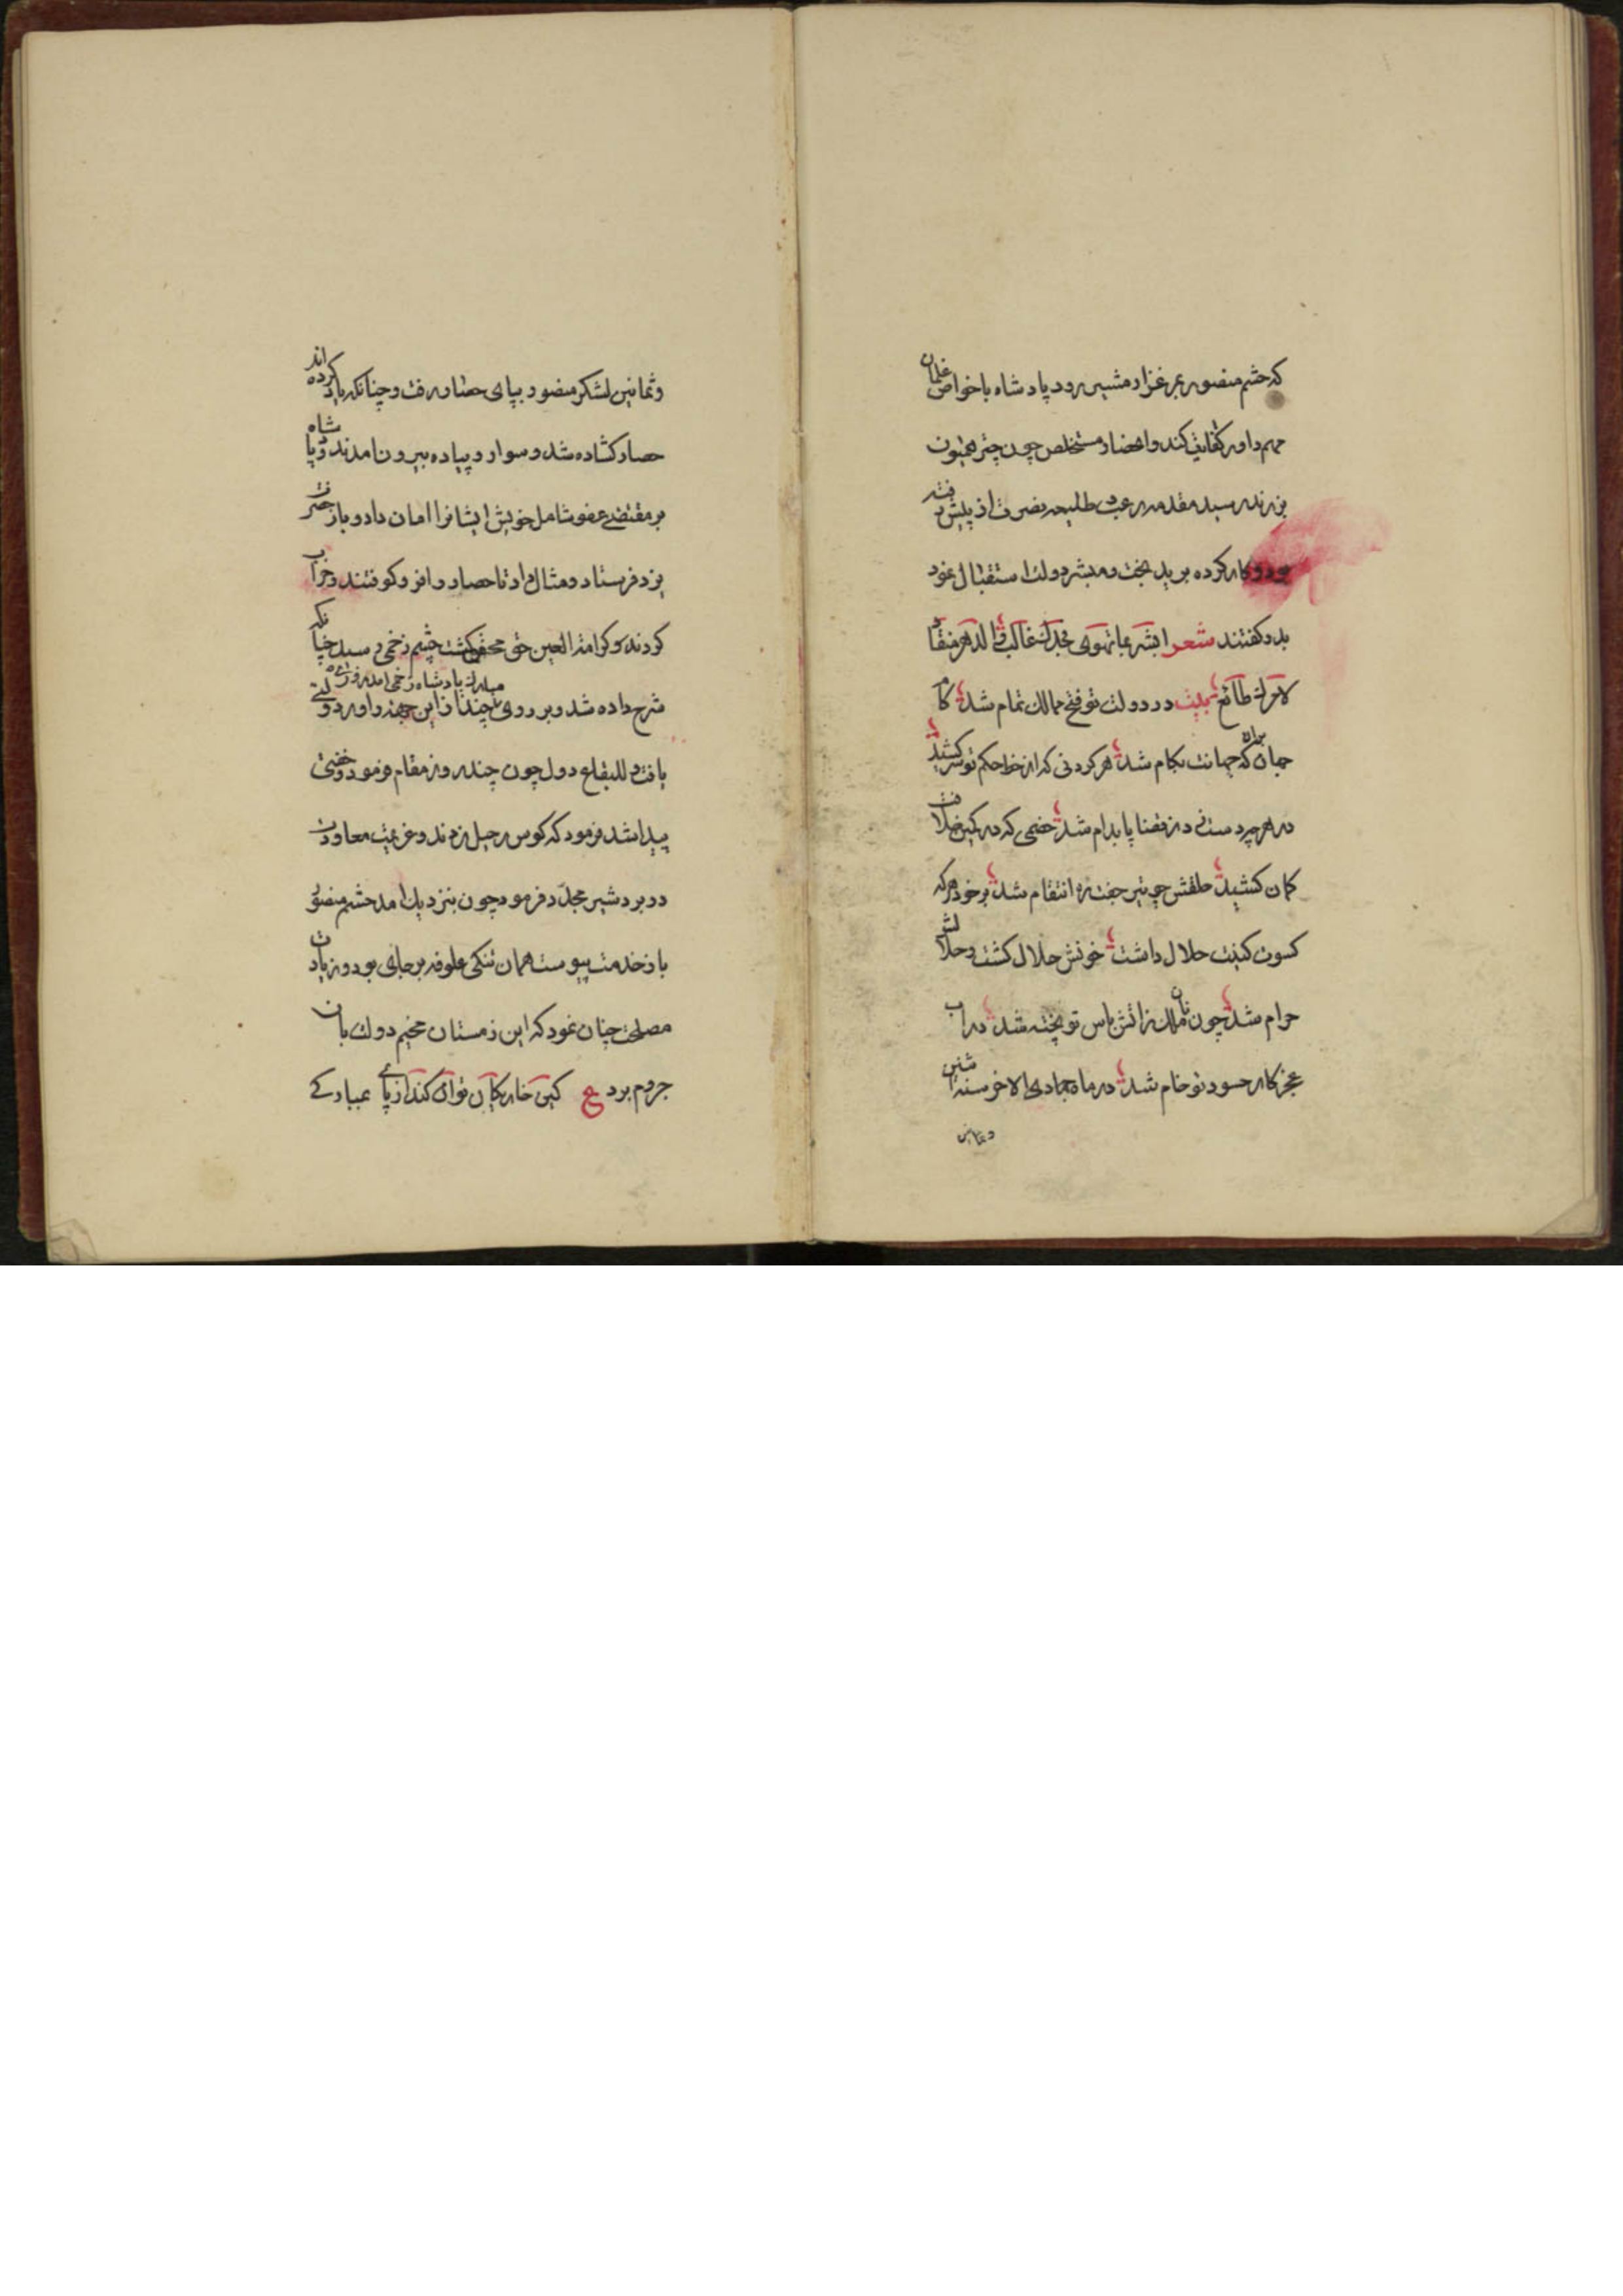 که حشم منصور بمرغزار مشیر رود پادشاه با خواص غلمان
مهم داور کفایت کند و احضار مستخلص چون چتر همیون
بزرند رسید مقدمه رعب طلیعه نصرت از پیش رفته
بود و کار کرده برید بخت و مبشر دولت استقبال نمود
بدو کفتند شعر ابشر بما تهوی فجدک غالب والدهر منقاد
لامرک طائع بیت در دولت تو فتح ممالک تمام شد کام
جهان بران که جهانت بکام شد هر کردنی که از خط حکم تو سر کشید
در هرچه دست زد ز قضا پایدام شد خصمی که در کمین خلافت
کمان کشید حلقش چو تیر جفت ره انتقام شد بر خود هر که
کسوت کینت حلال داشت خونش حلال کشت و حلالش
حرام شد چون نان ملک ز اتش باس تو پخته شد در اب
عجز کار حسود تو خام شد در ماه جمادی الاخر سنه اثنین
وثمانین
وثمانین لشکر منصور بپای حصار رفت و چنانکه یاد کرده اند
حصار کشاده شد و سوار و پیاده بیرون امدند و پادشاه
بر مقتضی عفو شامل خویش ایشانرا امان داد و باز حضرت
یزد فرستاد و مثال داد تا حصار را فرو کوفتند و خراب
کردند و کرامة العین حق محقق کشت چشم زخمی رسید چنانکه
شرح داده شد و بر روی مبارک پادشاه زخمی امد هر چند از این جهة داور دولتی
یافت و للبقاع دول چون چند روز مقام فرمود و خفتی
پیدا شد فرمود که کوس رحیل زدند و عزیمت معاودت
در بردشیر مجدّد فرمود چون بنزدیک امد حشم منصور
باز خدمت پیوست همان تنکی علوفه بر جای بود و زیادت
مصلحت چنان نمود که این زمستان مخیم دولت بان
جروم برد ع کین خار بکان توان کند از پای عبادکے